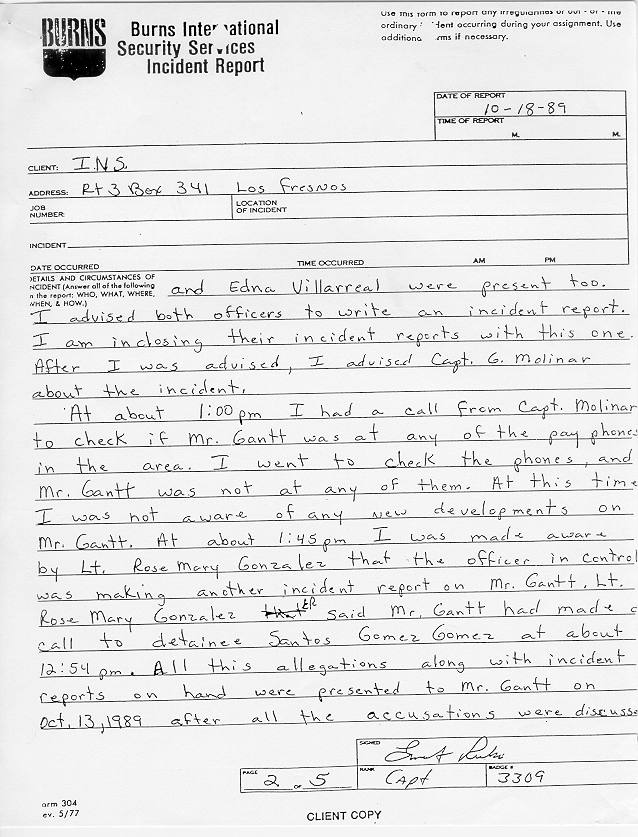 BURNS
Burns International
Security Services
Incident Report
Use this form to report any irregularities or out - of - the
ordinary dent occurring during your assignment. Use
additiona rms if necessary.
DATE OF REPORT
10-18-89
TIME OF REPORT
M. M.
CLIENT: I.N.S.
ADDRESS: Rt 3 Box 341 Los Fresnos
JOB NUMBER: LOCATION OF INCIDENT
INCIDENT
DATE OCCURRED TIME OCCURRED AM PM
DETAILS AND CIRCUMSTANCES OF
INCIDENT (Answer all of the following
in the report: WHO, WHAT, WHERE,
WHEN, & HOW.)
and Edna Villarreal were present too.
I advised both officers to write an incident report.
I am inclosing their incident reports with this one.
After I was advised, I advised Capt. G. Molinar
about the incident.
At about 1:00 pm I had a call from Capt. Molinar
to check if Mr. Gantt was at any of the pay phones
in the area. I went to check the phones, and
Mr. Gantt was not at any of them. At this time
I was not aware of any new developments on
Mr. Gantt. At about 1:45 pm I was made aware
by Lt. Rose Mary Gonzalez that the officer in control
was making another incident report on Mr. Gantt. Lt.
Rose Mary Gonzalez that ER said Mr. Gantt had made a
call to detainee Santos Gomez Gomez at about
12:54 pm. All this allegations along with incident
reports on hand were presented to Mr. Gantt on
Oct. 13, 1989 after all the accusations were discusse
SIGNED
PAGE 2 OF 5
RANK Capt
BADGE # 3309
orm 304
ev. 5/77
CLIENT COPY